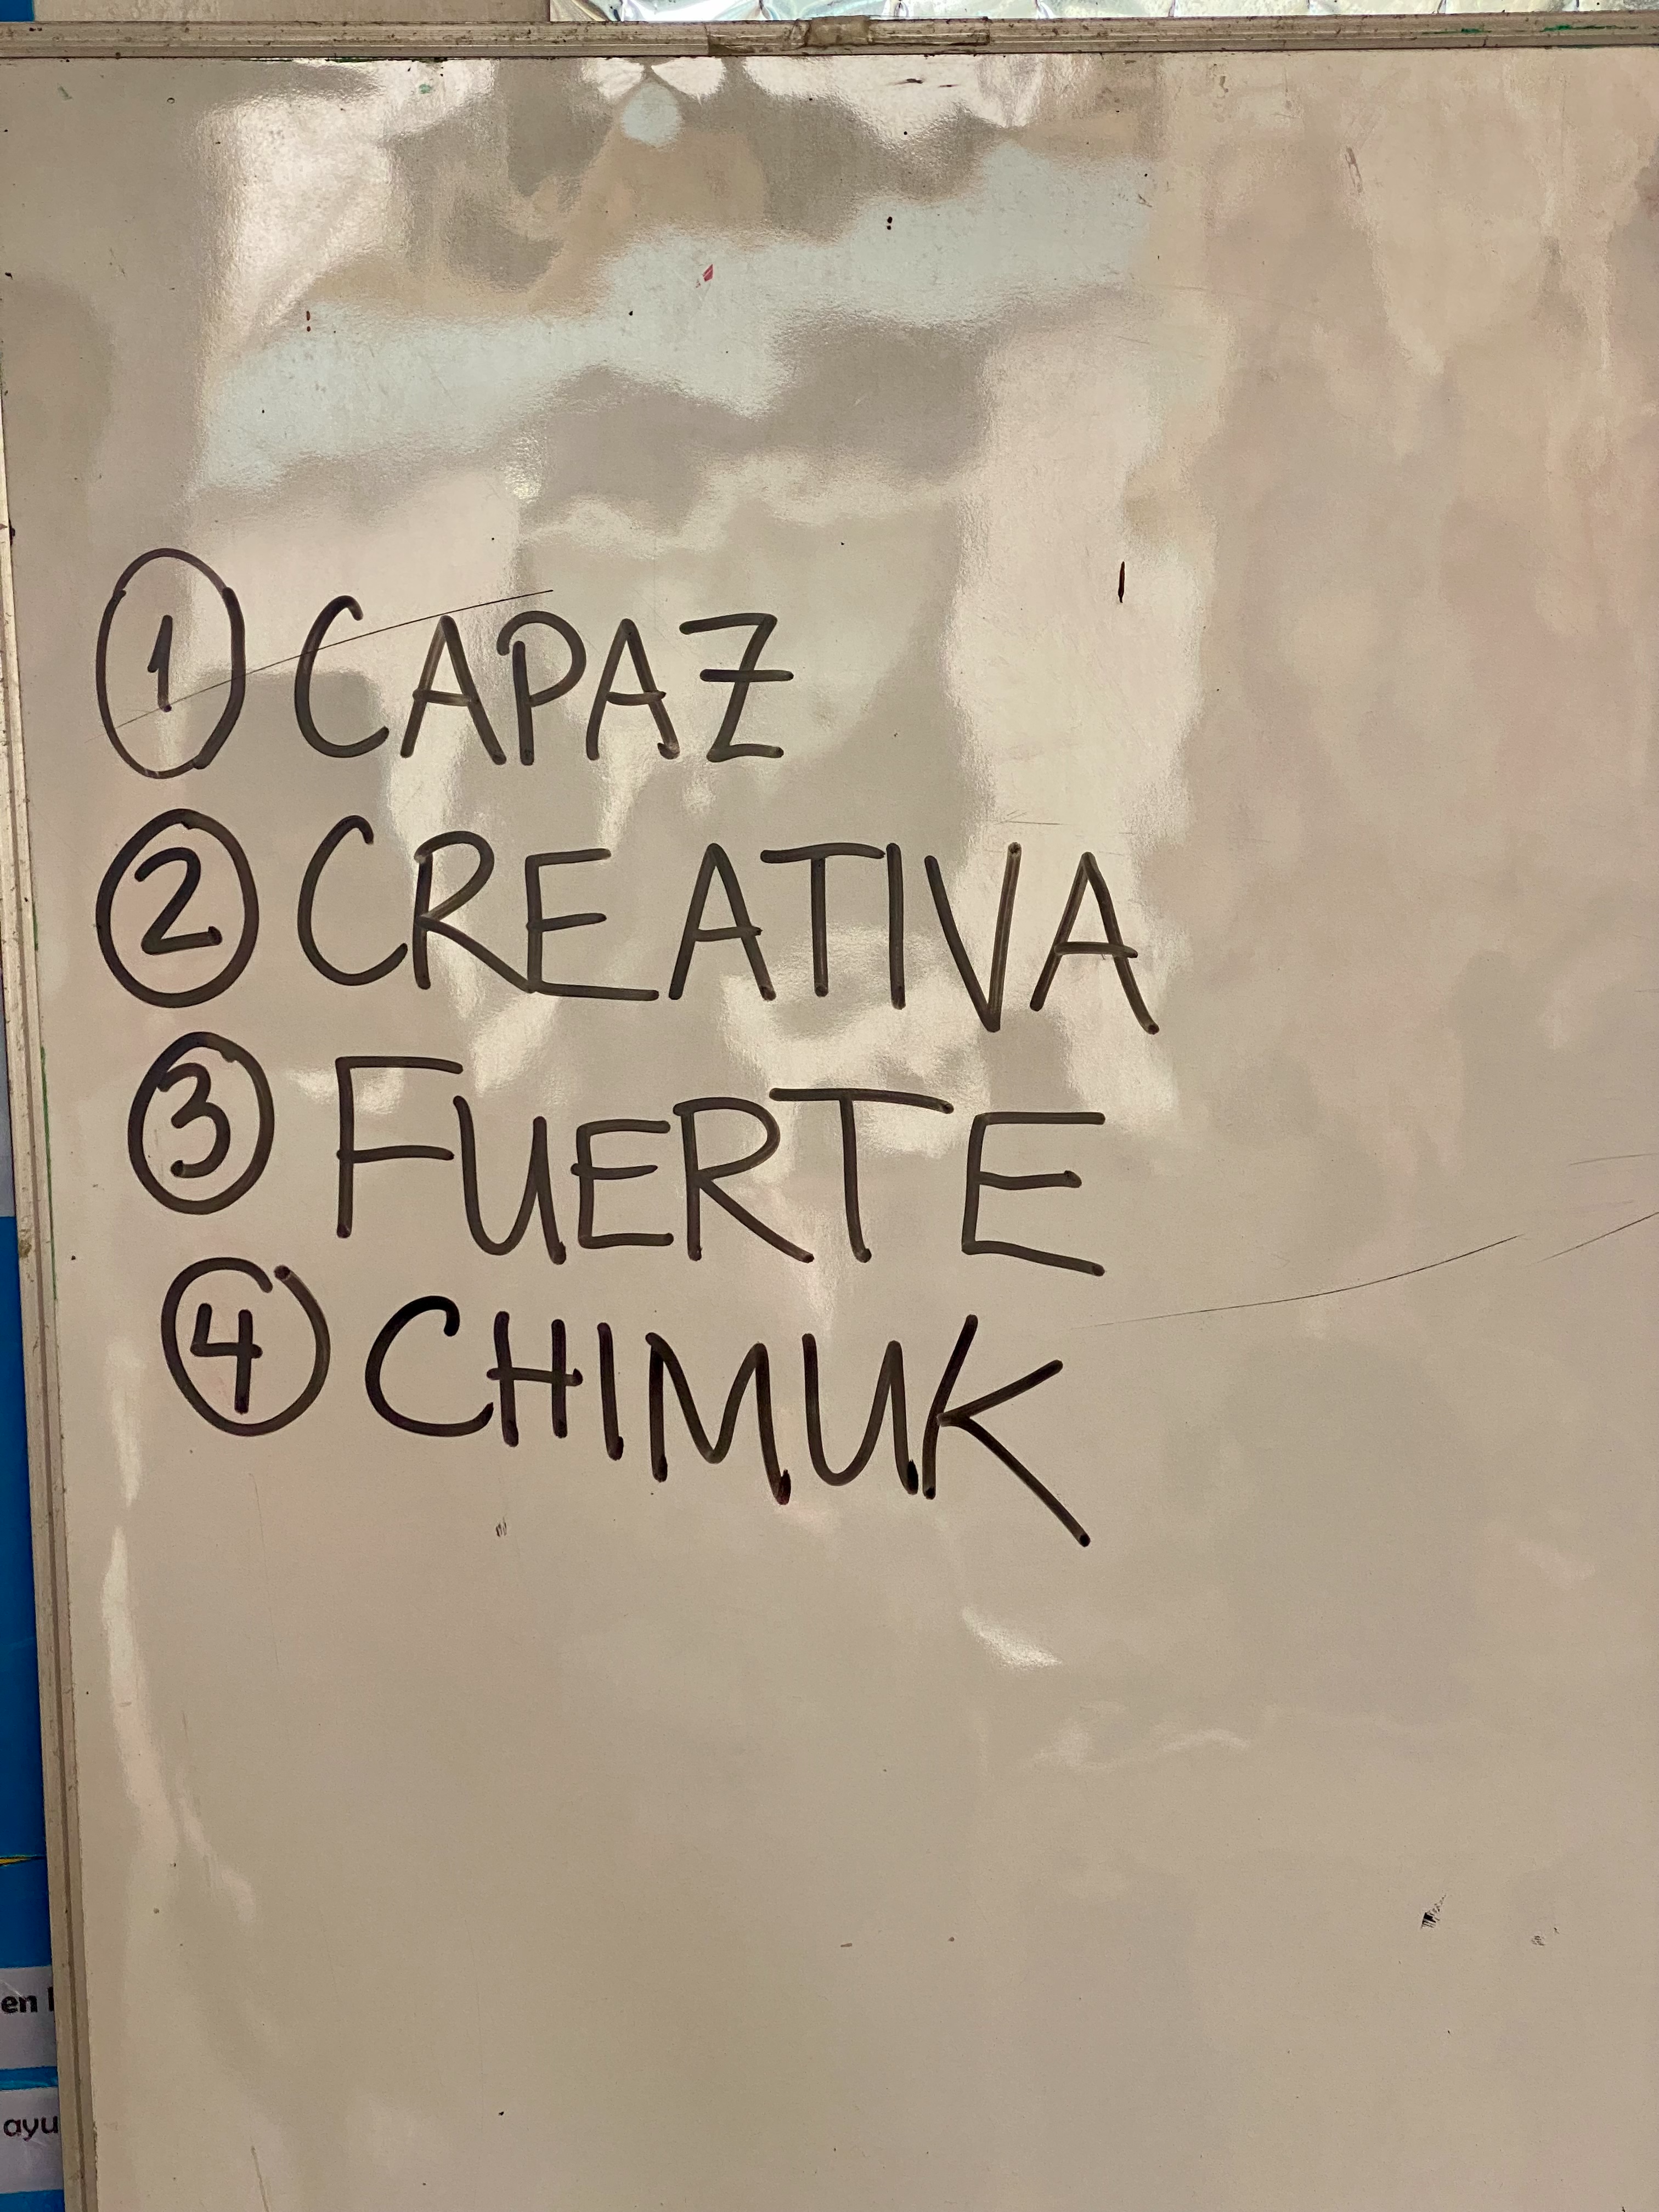 ① CAPAZ
② CREATIVA
③ FUERTE
④ CHIMUK
en
ayu